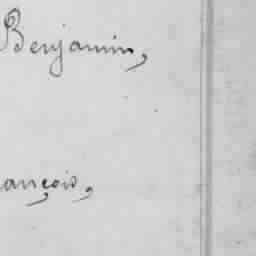 Benjamin,
ançois,